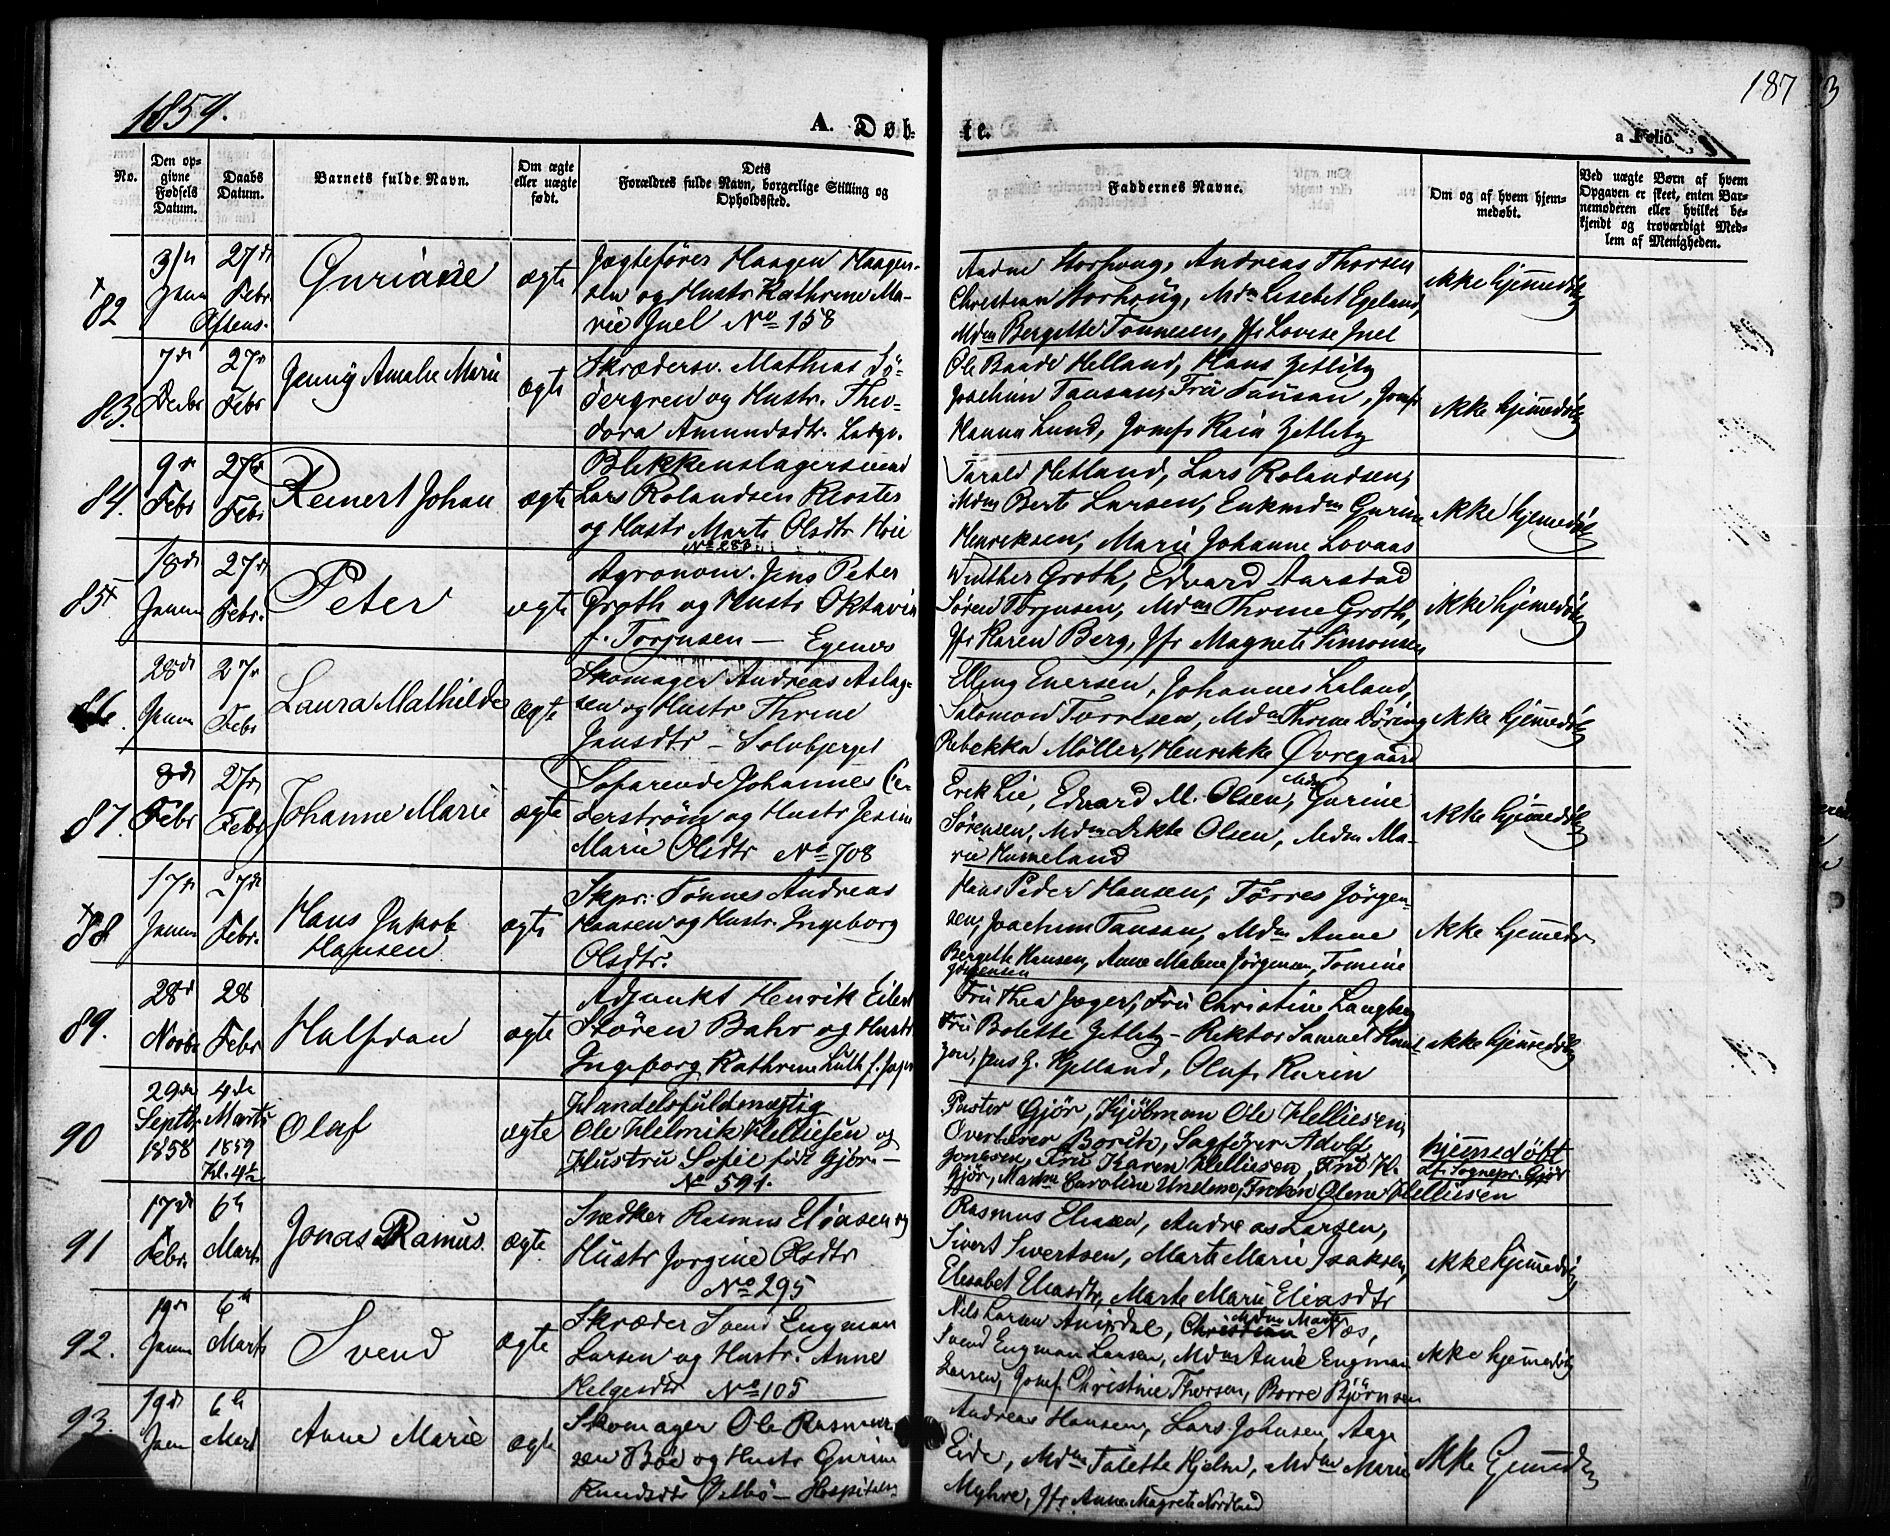 1859.
A. Døb-
te.
187
3
a Folio
No.
Den op-
givne
Fødsels
Datum.
Daabs
Datum.
Barnets fulde Navn.
Om ægte
eller uægte
født.
Dets
Forældres fulde Navn, borgerlige Stilling og
Opholdssted.
Faddernes Navne.
Om og af hvem hjem-
medøbt.
Ved uægte Børn af hvem
Opgaven er skeet, enten Bar-
nemoderen eller hvilket be-
kjendt og troværdigt Med-
lem af Menigheden.
82
31te Janu
27de Febr.
Aftens.
Guriane
ægte
Jægtefører Haagen Haagen-
sen og Hustr Kathrine Ma-
rie Juel No 158
Storhoug, Andreas Thorsen
Christian Storhoug, Mdm Lisebet Egeland,
Mdm Bergette Tønnesen, Jfr Lovise Juel
ikke hjemmedøbt
83.
7de Decbr
27de Febr
Jenny Amalie Marie
ægte
Skræddersv. Mathias Sö-
dergren og Hustr. Theo-
dora Amundsdtr. Ladg.
Ole Baade Helland, Hans Zetlitz
Joachim Tausan, Fru Tausan, Jomf
Hanna Lund, Jomfr Kaia Zetlitz
ikke hjemmedøbt
84.
9de Febr
27de Febr
Reinert Johan
ægte
Blikkenslagersvend
Lars Rolandsen Kloster
og Hustr Marte Olsdtr Hvie
No 283
Tarald Hetland, Lars Rolandsen,
Mdm Berte Larsen, Enkemdm Gurine
Henriksen, Marie Johanne Lovaas
ikke hjemmedøbt
85
18de Janu
27de Febr.
Peter
ægte
Agronom. Jens Peter
Groth og Hustr Oktavia
f. Torjusen — Egenes
Winther Groth, Edvard Aarstad
Søren Torjusen, Mdm Thrine Groth,
Jfr Karen Berg, Jfr Magnete Simonsen
ikke hjemmedøbt
86.
28de Janu
27de Febr
Laura Mathilde
ægte
Skomager Andreas Aslag-
sen og Hustr Thrine
Jansdtr — Solvbjerget
Elling Eversen, Johannes Laland,
Salomon Torresen, Mdm Thrine Døring
Rebekka Møller, Henrikke Øvregaard
ikke hjemmedøbt
87.
8de Febr
27de Febr
Johanne Marie
ægte
Søfarende Johannes Ce-
derstrøm og Hustr Jesine
Marie Olsdtr No 708
Erik Lie, Edvard M. Olsen, Mdm Gurine
Sørensen, Mdm Dikte Olsen, Mdm Ma-
rie Husmeland
ikke hjemmedøbt
88
17de Janu
27de Febr.
Hans Jakob
Hansen
ægte
Skpr. Tønnes Andreas
Hansen og Hustr. Ingeborg
Olsdtr.
Hans Peder Hansen, Tørres Jørgen-
sen, Joachim Tausan, Mdm Anne
Bergette Hansen, Anne Malene Jørgensen, Tomine
Jørgensen
ikke hjemmedøbt
89.
28de Novbr
28 Febr
Halfdan
ægte
Adjunkt Henrik Eilert
Støren Bahr og Hustr
Ingeborg Kathrine Luth f. Jager
Fru Thea Jæger, Fru Christine Langberg
Fru Bolette Zetlitz — Rektor Samuel Knud-
zon, Jens G. Kjelland, Oluf Kurin
ikke hjemmedøbt
90
29de Septbr
1858
4de Marts
1859
Kl. 4½
Olaf
ægte
Handelsfuldmægtig
Ole Helmik Helliesen og
Hustru Sofie født Gjør. —
No 591.
Pastor Gjør, Kjøbman Ole Helliesen,
Overlærer Borch, Sagfører Adolf
Jonesen, Fru Karen Helliesen, Fru H.
Gjør, Madm Caroline Undem, Frøken Olene Helliesen
hjemmedøbt
af Sognepr. Gjør
91
17de Febr.
6te Marts
Jonas Ramus
ægte
Snedker Rasmus Eliasen og
Hustr Jorgine Olsdtr
No 295
Rasmus Eliasen, Andreas Larsen,
Sivert Sivertsen, Marte Marie Isaksen,
Elisabet Eliasdtr, Marte Marie Eliasdtr
ikke hjemmedøbt
92.
19de Janu
6te Marts
Svend
ægte
Skræder Svend Engman
Larsen og Hustr. Anne
Helgesdtr No 105
Nils Larsen Auirdal, Mdm Marte Næs,
Svend Engman Larsen, Mdm Anne Engman
Larsen, Jomf. Christine Thorsen, Borre Bjørnsen
ikke hjemmedøbt
93.
19de Janu
6te Mart
Anne Marie
ægte
Skomager Ole Rasmus-
sen Bøe og Hustr Gurine
Knudsdtr Østbø — Hospitalsg
Andreas Hansen, Lars Johnsen, Aage
Eide, Mdm Talette Hjelm, Mdm Marie
Myhre, Jfr Anne Magrete Nordlund
ikke hjemmedøbt